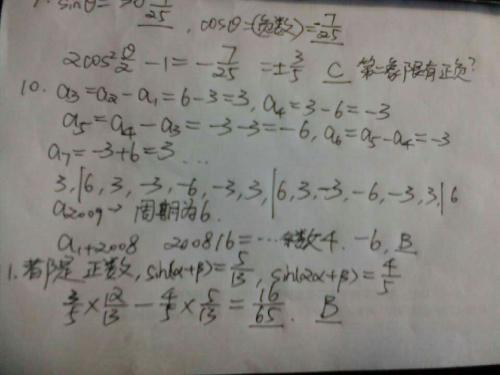 sinθ= 7/25, cosθ=(负数)=-7/25
2cos²θ/2 -1=-7/25 =±3/5 C 第一象限有正负?
10. a₃=a₂-a₁=6-3=3, a₄=3-6=-3
a₅=a₄-a₃=-3-3=-6, a₆=a₅-a₄=-3
a₇=-3+6=3 ...
3,|6,3,-3,-6,-3,3,|6,3,-3,-6,-3,3,|6
a₂₀₀₉→周期为6.
a₁₊₂₀₀₈ 2008/6=…余数4. -6, B
1. 若β是正数, sin(α+β)=5/13, sin(2α+β)=4/5
3/5×12/13-4/5×5/13=16/65. B